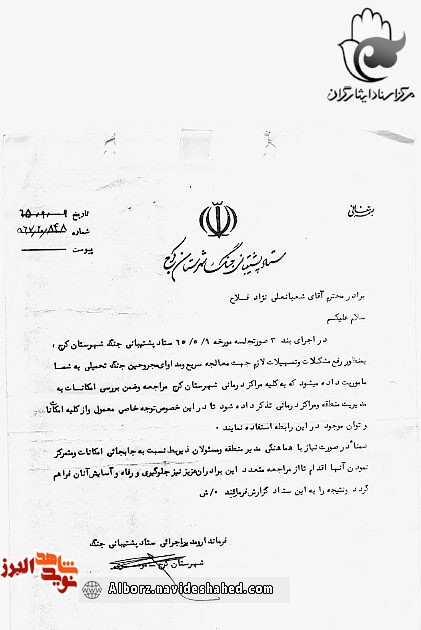 مرکز اسناد ایثارگران
بر تعالی
تاریخ
شماره
پیوست
ستاد پشتیبانی جنگ شهرستان کرج
برادر محترم آقای شعبانعلی نژاد فلاح
سلام علیکم
در اجرای بند ۳ صورتجلسه مورخه ۶۵/۵/۹ ستاد پشتیبانی جنگ شهرستان کرج ،
بمنظور رفع مشکلات و تسهیلات لازم جهت معالجه سریع ومداوای مجروحین جنگ تحمیلی به شما
ماموریت داده میشود که به کلیه مراکز درمانی شهرستان کرج مراجعه وضمن بررسی امکانات به
مدیریت منطقه ومراکز درمانی تذکر داده شود تا در این خصوص توجه خاصی معمول و از کلیه امکانات
و توان موجود در این رابطه استفاده نمایند ۰
ضمنا" در صورت نیاز با هماهنگی مدیر منطقه ومسئولان ذیربط نسبت به جابجائی امکانات ومتمرکز
نمودن آنها اقدام تا از مراجعه متعدد این برادران عزیز نیز جلوگیری و رفاه و آسایش آنان فراهم
گردد ونتیجه را به این ستاد گزارش فرمائید ۰/ش
فرماندار ومدیر اجرائی ستاد پشتیبانی جنگ
شهرستان کرج
نوید شاهد البرز
Alborz.navideshahed.com